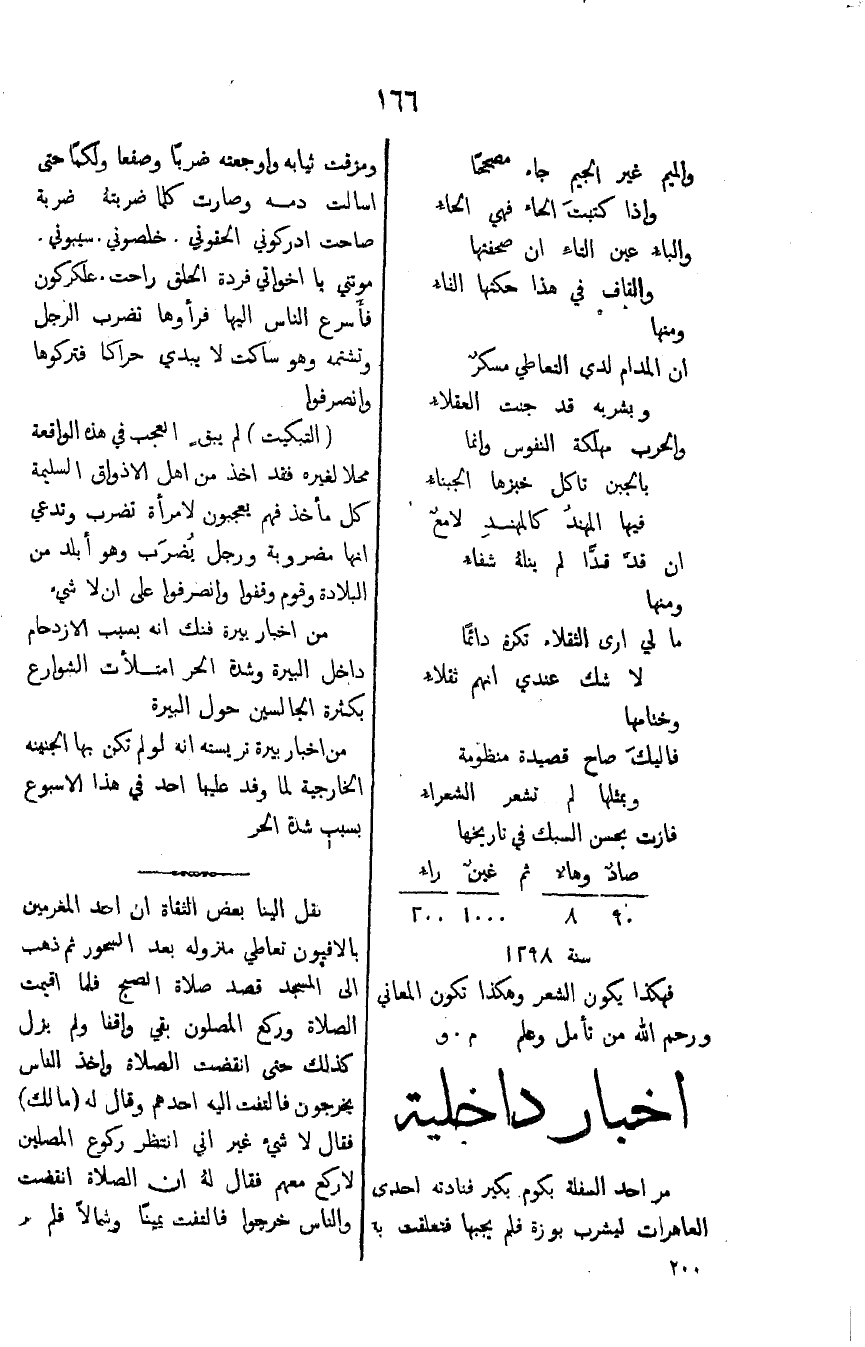 ١٦٦
والميم غير الجيم جاء مصححًا
وإذا كتبتَ الحاء فهي الحاء
والباء عين التاء ان صحفتها
والقاف في هذا حكتها الفاء
ومنها
ان المدام لدي التعاطي مسكرٌ
وبشربه قد جنت العقلاء
والحرب مهلكة النفوس وانما
بالجبن تاكل خبزها الجبناء
فيها المهندُ كالمهنـدِ لامعٌ
ان قدَّ قدًّا لم ينلهُ شفاء
ومنها
ما لي ارى الثقلاء تكره دائمًا
لا شك عندي انهم ثقلاء
وختامها
فاليكَ صاح قصيدة منظومة
وبمثلها لم تشعر الشعراء
فازت بحسن السبك في تاريخها
صادٌ وهاء ثم غينٌ راء
٩٠ ٨ ١٠٠٠ ٢٠٠
سنة ١٢٩٨
فهكذا يكون الشعر وهكذا تكون المعاني
ورحم الله من تأمل وعلم م٠و
اخبار داخلية
مر احد السفلة بكوم بكير فنادته احدى
العاهرات ليشرب بوزة فلم يجبها فتعلقت به
٢٠٠
ومزقت ثيابه واوجعته ضربًا وصفعا ولكمًا حتى
اسالت دمـه وصارت كلما ضربتهُ ضربة
صاحت ادركوني الحقوني . خلصوني . سيبوني .
موتني يا اخواتي فردة الحلق راحت . علكركون
فأسرع الناس اليها فرأوها تضرب الرجل
وتشتمه وهو ساكت لا يبدي حراكا فتركوها
وانصرفوا
(التبكيت) لم يبقِ العجب في هذه الواقعة
محلا لغيره فقد اخذ من اهل الاذواق السليمة
كل مأخذ فهم يعجبون لامرأة تضرب وتدعي
انها مضروبة ورجل يُضرَب وهو أبلد من
البلادة وقوم وقفوا وانصرفوا على ان لا شيء
من اخبار بيرة فنك انه بسبب الازدحام
داخل البيرة وشدة الحر امتـلأت الشوارع
بكثرة الجالسين حول البيرة
من اخبار بيرة تريسته انه لو لم تكن بها الجنينه
الخارجية لما وفد عليها احد في هذا الاسبوع
بسبب شدة الحر
نقل الينا بعض الثقاة ان احد المغرمين
بالافيون تعاطي منزوله بعد السحور ثم ذهب
الى المسجد قصد صلاة الصبح فلما اقيمت
الصلاة وركع المصلون بقي واقفا ولم يزل
كذلك حتى انقضت الصلاة واخذ الناس
يخرجون فالتفت اليه احدهم وقال له (مالك)
فقال لا شيء غير اني انتظر ركوع المصلين
لاركع معهم فقال لهُ ان الصلاة انقضت
والناس خرجوا فالتفت يمينًا وشمالاً فلم